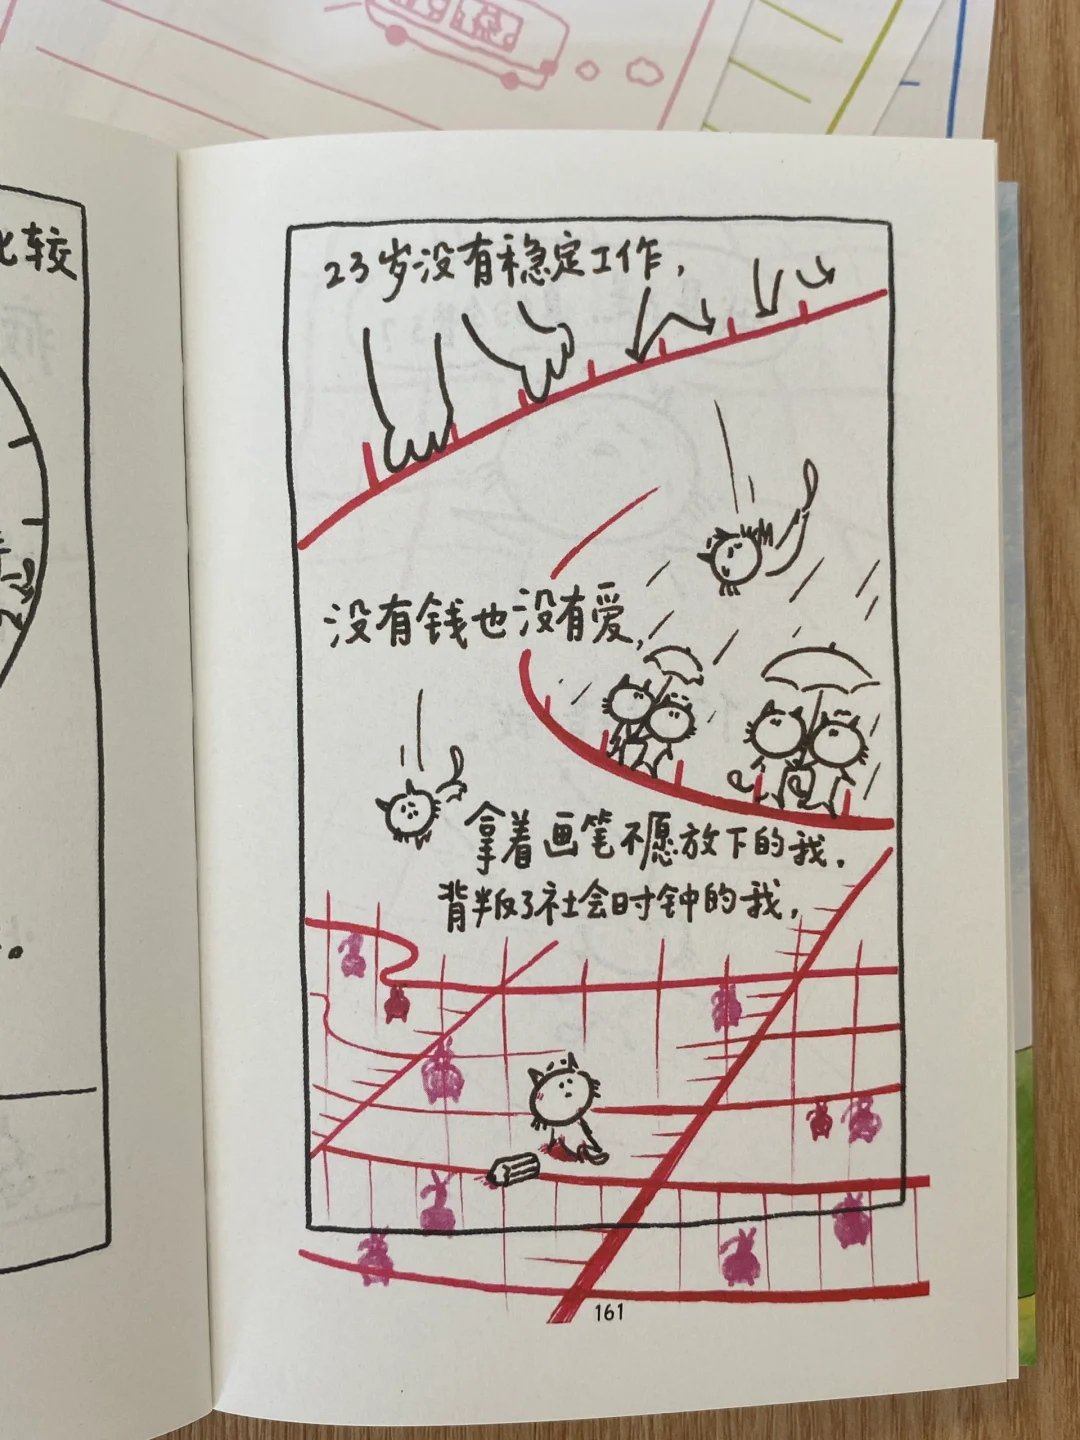 比较
23岁没有稳定工作,
没有钱也没有爱,
拿着画笔不愿放下的我.
背叛了社会时钟的我,
161